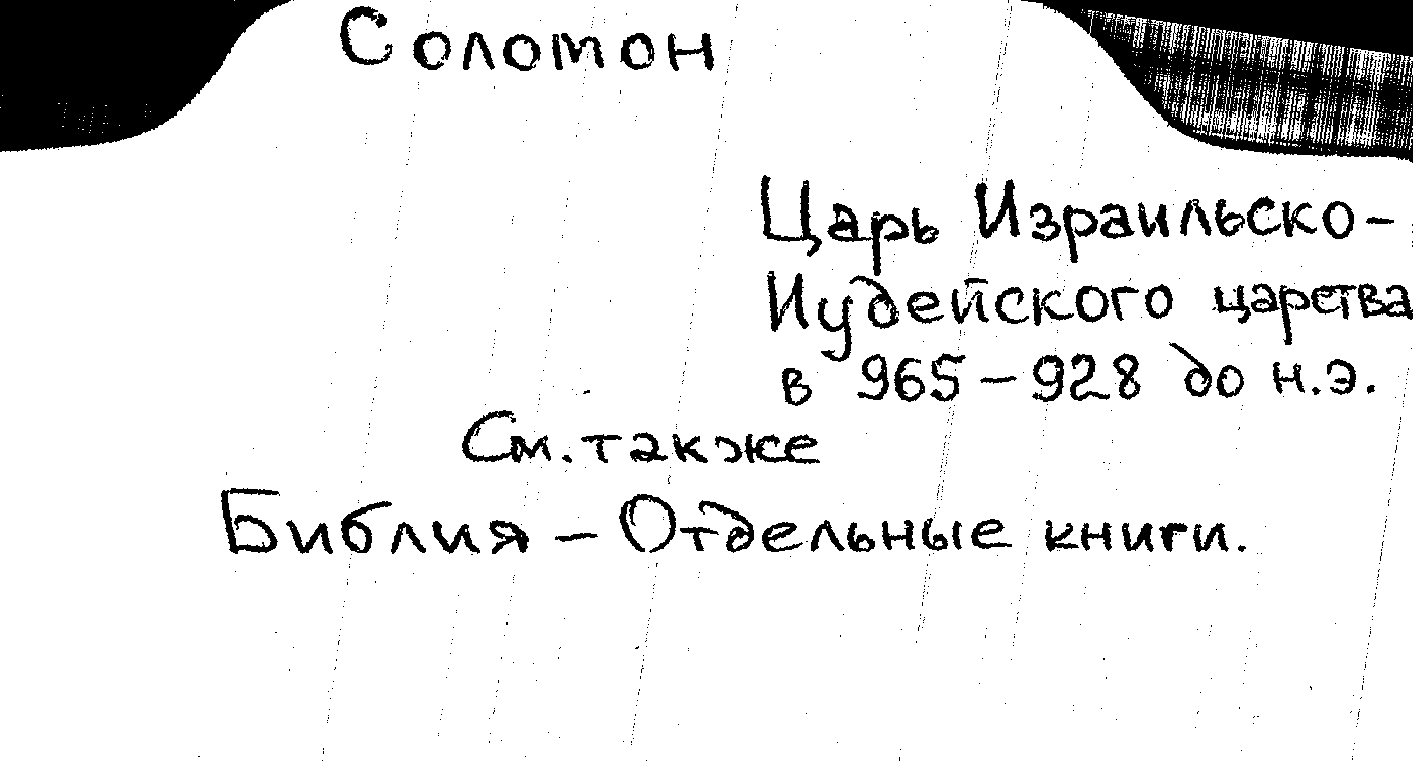 Соломон
Царь Израильско-
Иудейского царства
в 965-928 до н.э.
См. также
Библия - Отдельные книги.